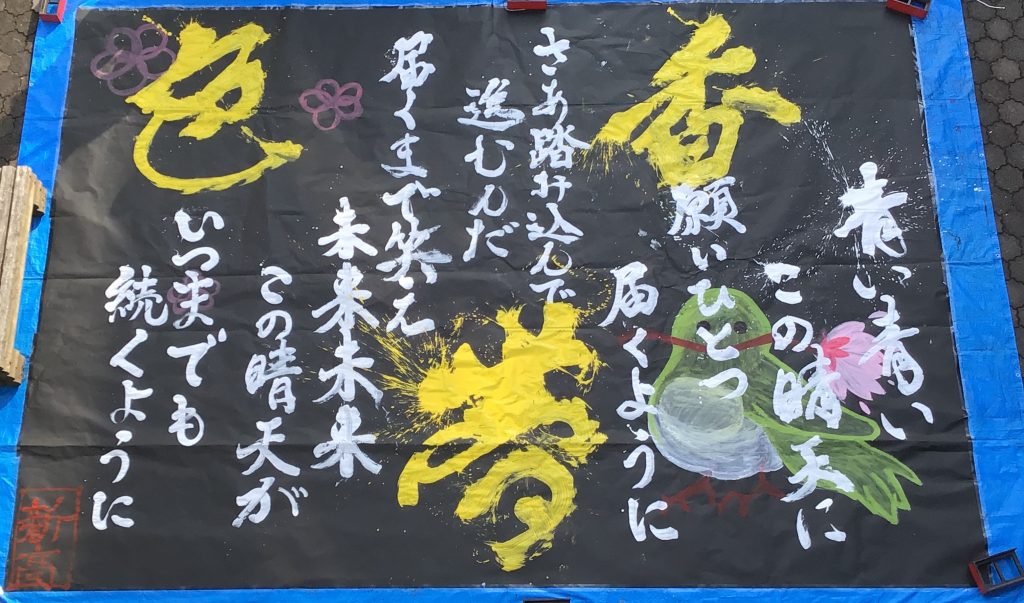 青い青い
この晴天に
香
願いひとつ
届くように
さあ踏み込んで
進むんだ
届くまで笑え
未来未来
この晴天が
色
いつまでも
続くように
新高